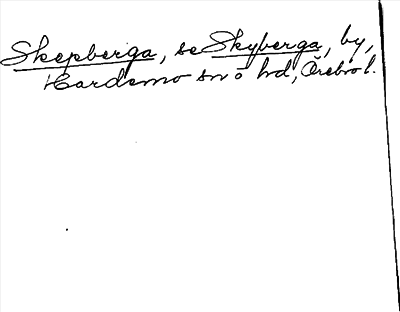 Skepberga, se Skyberga, by,
Hardemo sn o hd, Örebro l.